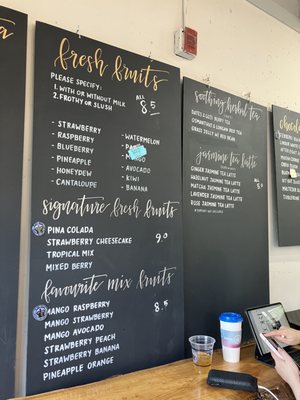 fresh fruits
PLEASE SPECIFY:
1. WITH OR WITHOUT MILK
2. FROTHY OR SLUSH
ALL
8.5
- STRAWBERRY
- RASPBERRY
- BLUEBERRY
- PINEAPPLE
- HONEYDEW
- CANTALOUPE
- WATERMELON
- MANGO
- AVOCADO
- KIWI
- BANANA
signature fresh fruits
PINA COLADA
STRAWBERRY CHEESECAKE
TROPICAL MIX
MIXED BERRY
9.0
favourite mix fruits
MANGO RASPBERRY
MANGO STRAWBERRY
MANGO AVOCADO
STRAWBERRY PEACH
STRAWBERRY BANANA
PINEAPPLE ORANGE
8.5
soothing herbal tea
OSMANTHUS & LONGAN RED TEA
GRASS JELLY W/
jasmine tea latte
GINGER JASMINE TEA LATTE
HAZELNUT JASMINE TEA LATTE
MATCHA JASMINE TEA LATTE
LAVENDER JASMINE TEA LATTE
ROSE JASMINE TEA LATTE
ALL